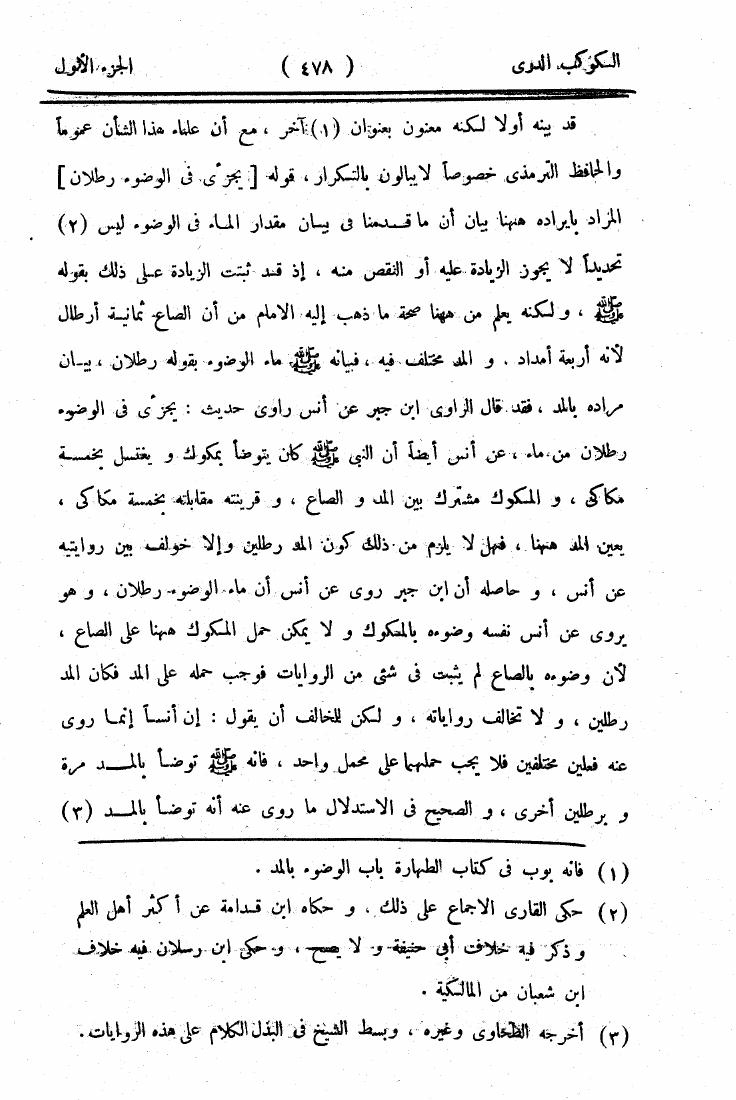 الكوكب الدرى ( ٤٧٨ ) الجزء الأول
قد بينه أولا لكنه معنون بعنوان (١) آخر ، مع أن علماء هذا الشأن عموماً
والحافظ الترمذى خصوصاً لا يبالون بالتكرار ، قوله [ يجزئ فى الوضوء رطلان ]
المراد بايراده ههنا بيان أن ما قدمنا فى بيان مقدار الماء فى الوضوء ليس (٢)
تحديداً لا يجوز الزيادة عليه أو النقص منه ، إذ قد ثبتت الزيادة على ذلك بقوله
ﷺ ، و لكنه يعلم من ههنا صحة ما ذهب إليه الامام من أن الصاع ثمانية أرطال
لأنه أربعة أمداد . و المد مختلف فيه ، فبيانه ﷺ ماء الوضوء بقوله رطلان ، بيان
مراده بالمد ، فقد قال الراوى ابن جبر عن أنس راوى حديث : يجزئ فى الوضوء
رطلان من ماء ، عن أنس أيضاً أن النبى ﷺ كان يتوضأ بمكوك و يغتسل بخمسة
مكاكى ، و المكوك مشترك بين المد و الصاع ، و قرينته مقابلته بخمسة مكاكى ،
يعين المد ههنا ، فهل لا يلزم من ذلك كون المد رطلين وإلا خولف بين روايتيه
عن أنس ، و حاصله أن ابن جبر روى عن أنس أن ماء الوضوء رطلان ، و هو
يروى عن أنس نفسه وضوءه بالمكوك و لا يمكن حمل المكوك ههنا على الصاع ،
لأن وضوءه بالصاع لم يثبت فى شئى من الروايات فوجب حمله على المد فكان المد
رطلين ، و لا تخالف رواياته ، و لكن للخالف أن يقول : إن أنساً إنما روى
عنه فعلين مختلفين فلا يجب حملهما على محمل واحد ، فانه ﷺ توضأ بالمد مرة
و برطلين أخرى ، و الصحيح فى الاستدلال ما روى عنه أنه توضأ بالمد (٣)
(١) فانه بوب فى كتاب الطهارة باب الوضوء بالمد .
(٢) حكى القارى الاجماع على ذلك ، و حكاه ابن قدامة عن أكثر أهل العلم
و ذكر فيه خلاف أبى حنيفة و لا يصح ، و حكى ابن رسلان فيه خلاف
ابن شعبان من المالكية .
(٣) أخرجه الطحاوى وغيره ، وبسط الشيخ فى البذل الكلام على هذه الروايات .